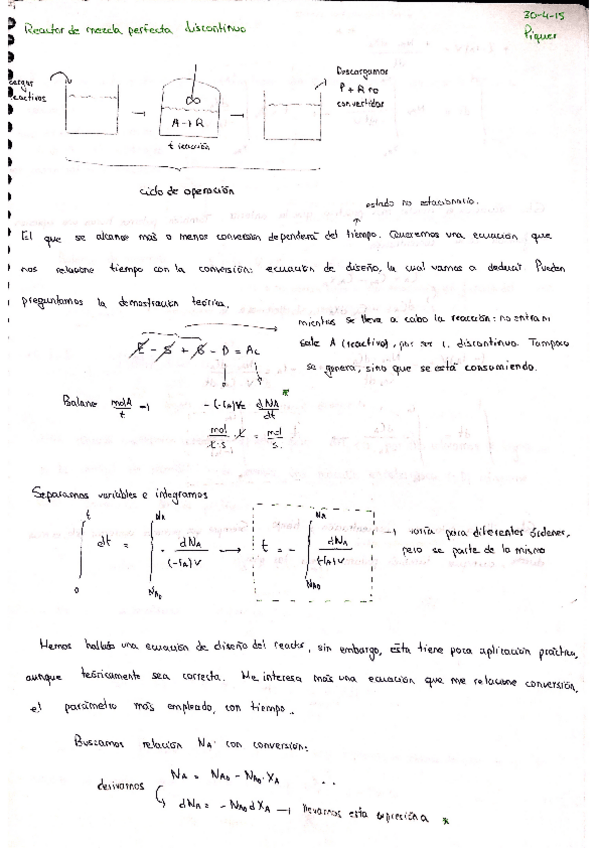 30-4-15
Reactor de mezcla perfecta discontinuo
Piquer
cargar reactivos
A→R
t reacción
Descargamos
P + R no
convertidos
ciclo de operación
estado no estacionario.
El que se alcance más o menos conversión dependerá del tiempo. Queremos una ecuación que
nos relacione tiempo con la conversión: ecuación de diseño, la cual vamos a deducir. Pueden
preguntarnos la demostración teórica.
mientras se lleva a cabo la reacción: no entra ni
sale A (reactivo), por ser r. discontinuo. Tampoco
se genera, sino que se está consumiendo.
E - S + G - D = Ac
Balance molA/t → -(-rA)V = dNA/dt *
mol/(l·s) · l = mol/s
Separamos variables e integramos
∫₀ᵗ dt = ∫_NA₀^NA - dNA/((-rA)V) → t = - ∫_NA₀^NA dNA/((-rA)V) → varía para diferentes órdenes,
pero se parte de lo mismo
Hemos hallado una ecuación de diseño del reactor, sin embargo, ésta tiene poca aplicación práctica,
aunque teóricamente sea correcta. Me interesa más una ecuación que me relacione conversión,
el parámetro más empleado, con tiempo.
Buscamos relación NA con conversión:
NA = NA₀ - NA₀·XA
derivamos
dNA = - NA₀ dXA → llevamos esta expresión a *